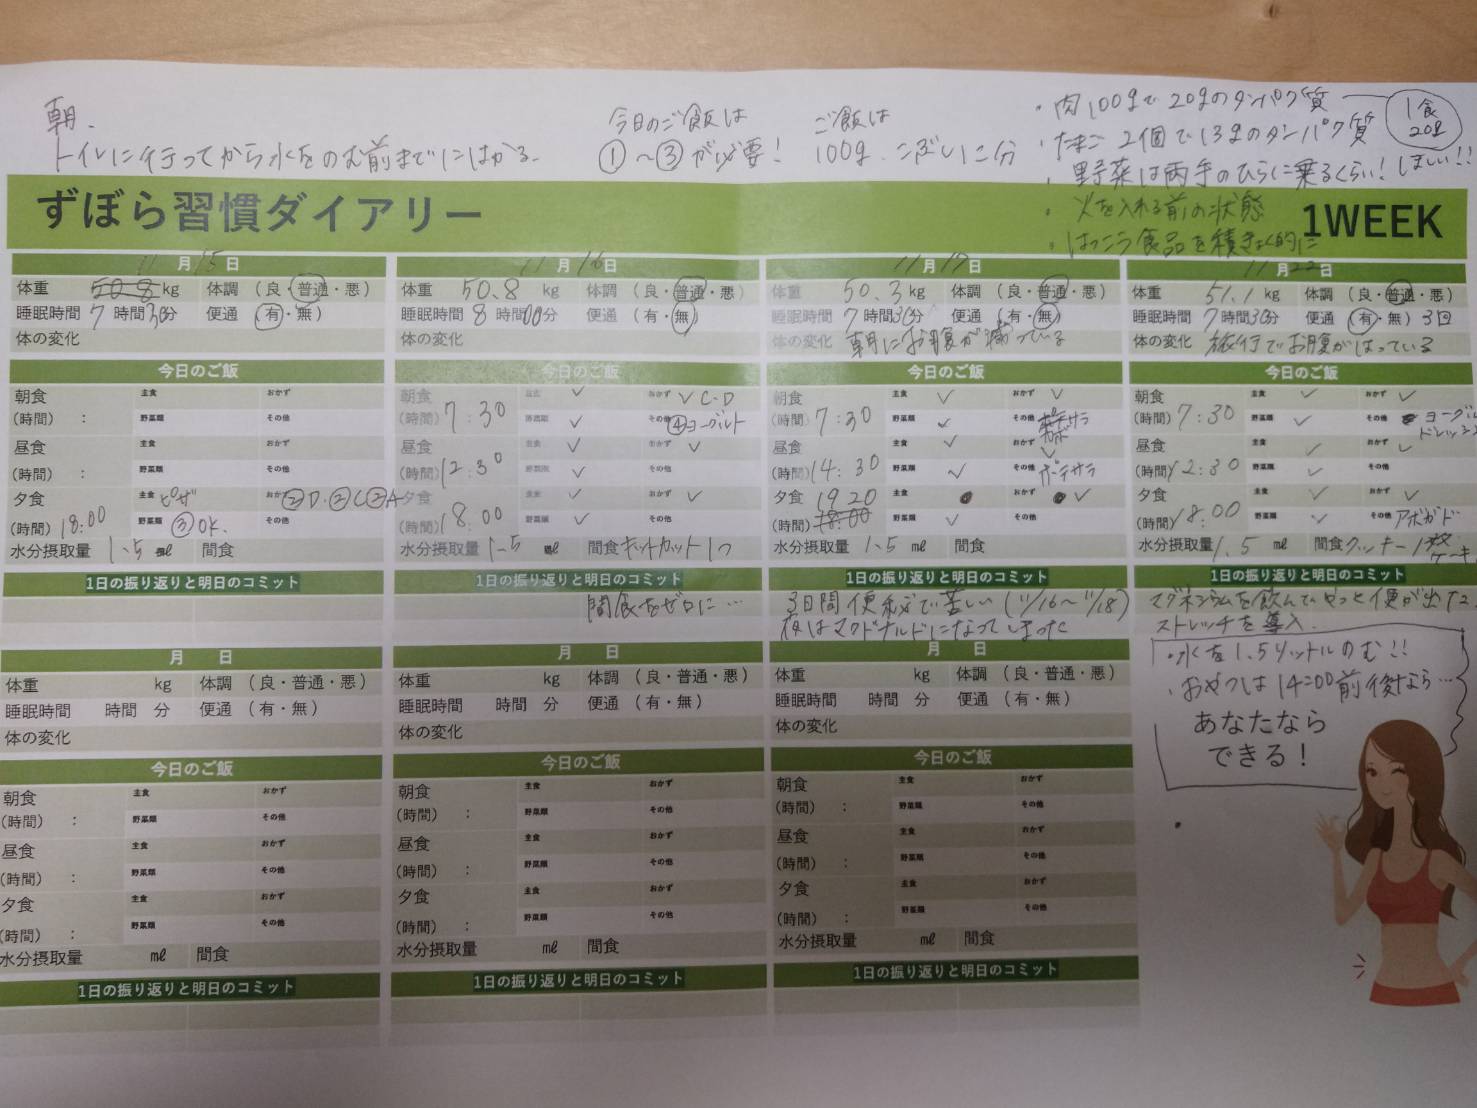 朝、
トイレに行ってから水をのむ前までにはかる。
今日のご飯は
①〜③が必要!
ご飯は
100g. こぶし1こ分
・肉100gで20gのタンパク質
1食
20g
ほしい!!
・たまご 2個で13gのタンパク質
・野菜は両手のひらに乗るくらい!
・火を入れる前の状態
・はっこう食品を積きょく的に
ずぼら習慣ダイアリー
1WEEK
11月15日
体重 50.8 kg 体調 (良・普通・悪)
睡眠時間 7 時間 30分 便通 (有・無)
体の変化
今日のご飯
朝食 主食 おかず
(時間) : 野菜類 その他
昼食 主食 おかず
(時間) : 野菜類 その他
夕食 主食 ピザ おかず ②D・②C②A
(時間) 18:00 野菜類 ③OK. その他
水分摂取量 1.5 ㎖ 間食
1日の振り返りと明日のコミット
11月16日
体重 50.8 kg 体調 (良・普通・悪)
睡眠時間 8 時間00分 便通 (有・無)
体の変化
今日のご飯
朝食 主食 ✓ おかず ✓ C・D
(時間) 7:30 野菜類 ✓ その他 ④ヨーグルト
昼食 主食 ✓ おかず ✓
(時間) 12:30 野菜類 ✓ その他
夕食 主食 ✓ おかず ✓
(時間) 18:00 野菜類 ✓ その他
水分摂取量 1.5 ㎖ 間食 キットカット1つ
1日の振り返りと明日のコミット
間食をゼロに…
11月17日
体重 50.3 kg 体調 (良・普通・悪)
睡眠時間 7 時間30分 便通 (有・無)
体の変化 朝にお腹が減っている
今日のご飯
朝食 主食 ✓ おかず ✓
(時間) 7:30 野菜類 ✓ その他
昼食 主食 ✓ おかず ✓
(時間) 14:30 野菜類 ✓ その他 ポテサラ
夕食 主食 おかず ✓
(時間) 18:00 19:20 野菜類 ✓ その他
水分摂取量 1.5 ㎖ 間食
1日の振り返りと明日のコミット
3日間便秘で苦しい (11/16〜11/18)
夜はマクドナルドになってしまった
11月22日
体重 51.1 kg 体調 (良・普通・悪)
睡眠時間 7 時間30分 便通 (有・無) 3回
体の変化 旅行でお腹がはっている
今日のご飯
朝食 主食 ✓ おかず ✓
(時間) 7:30 野菜類 ✓ その他
昼食 主食 ✓ おかず ✓
(時間) 12:30 野菜類 ✓ その他
夕食 主食 ✓ おかず ✓
(時間) 18:00 野菜類 ✓ その他 アボガド
水分摂取量 1.5 ㎖ 間食 クッキー1枚 ケーキ
1日の振り返りと明日のコミット
マグネシウムを飲んでやっと便が出た
ストレッチを導入.
月 日
体重 kg 体調 (良・普通・悪)
睡眠時間 時間 分 便通 (有・無)
体の変化
今日のご飯
朝食 主食 おかず
(時間) : 野菜類 その他
昼食 主食 おかず
(時間) : 野菜類 その他
夕食 主食 おかず
(時間) : 野菜類 その他
水分摂取量 ㎖ 間食
1日の振り返りと明日のコミット
月 日
体重 kg 体調 (良・普通・悪)
睡眠時間 時間 分 便通 (有・無)
体の変化
今日のご飯
朝食 主食 おかず
(時間) : 野菜類 その他
昼食 主食 おかず
(時間) : 野菜類 その他
夕食 主食 おかず
(時間) : 野菜類 その他
水分摂取量 ㎖ 間食
1日の振り返りと明日のコミット
月 日
体重 kg 体調 (良・普通・悪)
睡眠時間 時間 分 便通 (有・無)
体の変化
今日のご飯
朝食 主食 おかず
(時間) : 野菜類 その他
昼食 主食 おかず
(時間) : 野菜類 その他
夕食 主食 おかず
(時間) : 野菜類 その他
水分摂取量 ㎖ 間食
1日の振り返りと明日のコミット
・水を1.5リットルのむ!!
・おやつは14:00前後なら…
あなたなら
できる!